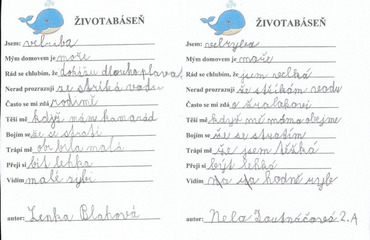 ŽIVOTABÁSEŇ
Jsem: velriba
Mým domovem je moře
Rád se chlubím, že dokážu dlouho plavat
Nerad prozrazuji se stříká vodu
Často se mi zdá rodině
Těší mě když mám kamarád
Bojím se že se stratí
Trápí mě
Přeji si být lehka
Vidím malé rybi
autor: Lenka Blahová
ŽIVOTABÁSEŇ
Jsem: velryba
Mým domovem je moře
Rád se chlubím, že jsem velká
Nerad prozrazuji že stříkám vodu
Často se mi zdá o žralokovi
Těší mě když mě máma obejme
Bojím se že se stratím
Trápí mě že jsem těžká
Přeji si být lehká
Vidím hodně ryb
autor: Nela 2.A